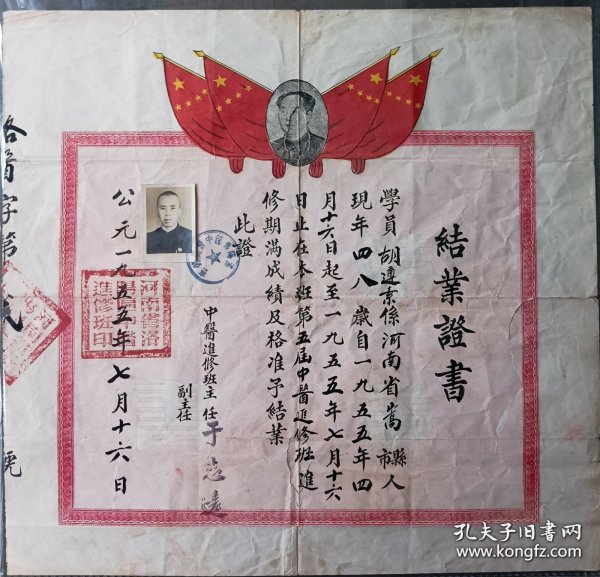 結業證書
學員胡遵京係河南省嵩縣市人
現年四八歲自一九五五年四
月十六日起至一九五五年七月十六
日止在本班第五屆中醫進修班進
修期滿成績及格准予結業
此證
中醫進修班主任于志遠
副主任
公元一九五五年七月十六日
河南省洛
陽專區中醫
進修班印
洛醫字第 號
孔夫子旧书网
www.kongfz.com